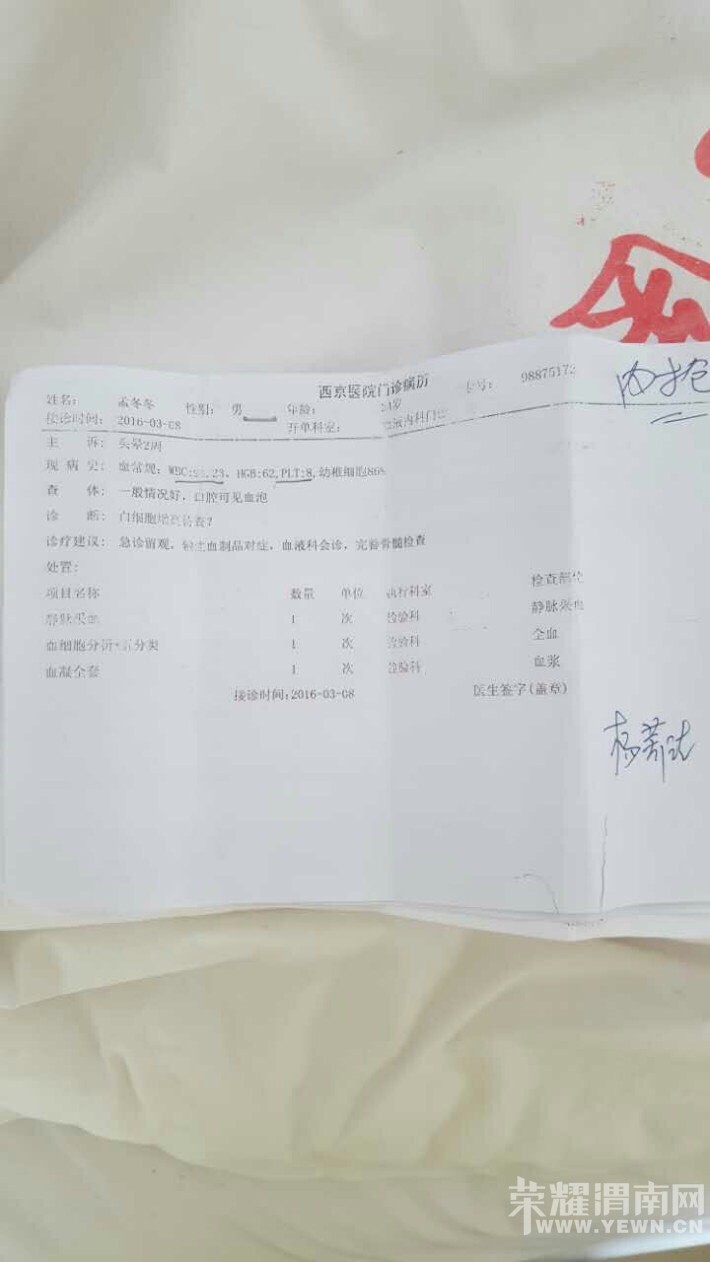 西京医院门诊病历
姓名: 孟冬冬 性别: 男 年龄: 岁 卡号: 98875173
内抢
接诊时间: 2016-03-08 开单科室: 血液内科门
主 诉: 头晕2周
现 病 史: 血常规: WBC: .23, HGB:62, PLT:8, 幼稚细胞86%
查 体: 一般情况好, 口腔可见血泡
诊 断: 白细胞增 待查?
诊疗建议: 急诊留观, 输注血制品对症, 血液科会诊, 完善骨髓检查
处置:
项目名称 数量 单位 执行科室 检查部位
静脉采血 1 次 检验科 静脉采血
血细胞分析+五分类 1 次 检验科 全血
血凝全套 1 次 检验科 血浆
接诊时间:2016-03-08 医生签字(盖章)
荣耀渭南网
WWW.YEWN.CN